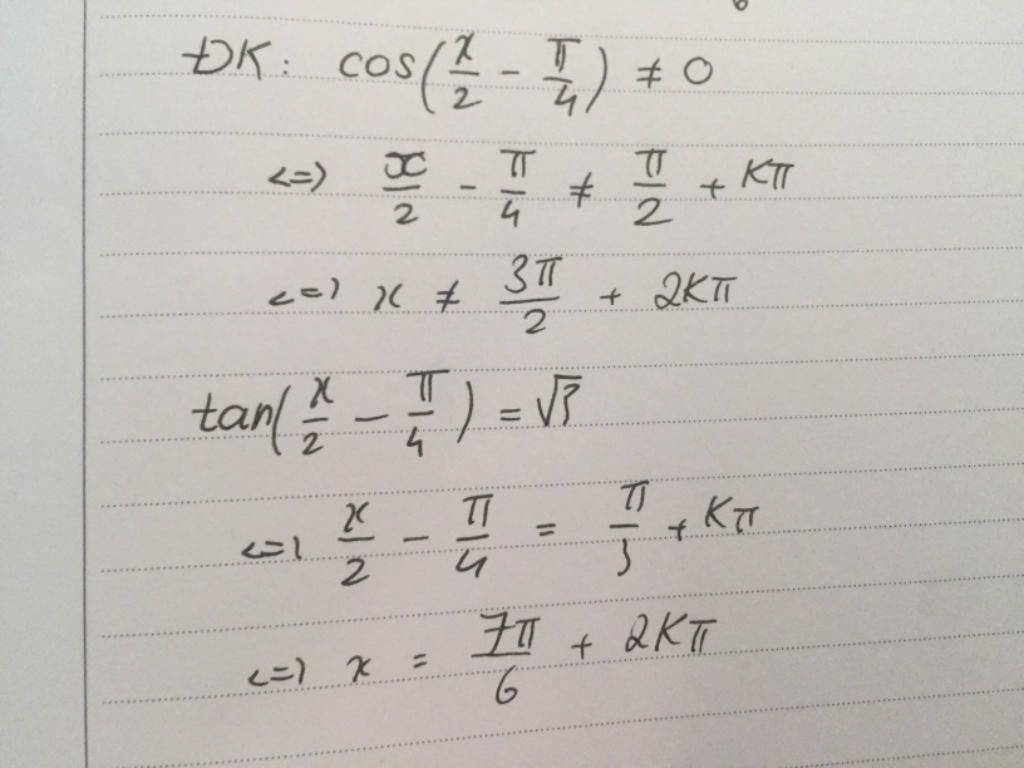 ĐK: cos(x/2 - π/4) ≠ 0
<=> x/2 - π/4 ≠ π/2 + Kπ
<=> x ≠ 3π/2 + 2Kπ
tan(x/2 - π/4) = √3
<=> x/2 - π/4 = π/3 + Kπ
<=> x = 7π/6 + 2Kπ